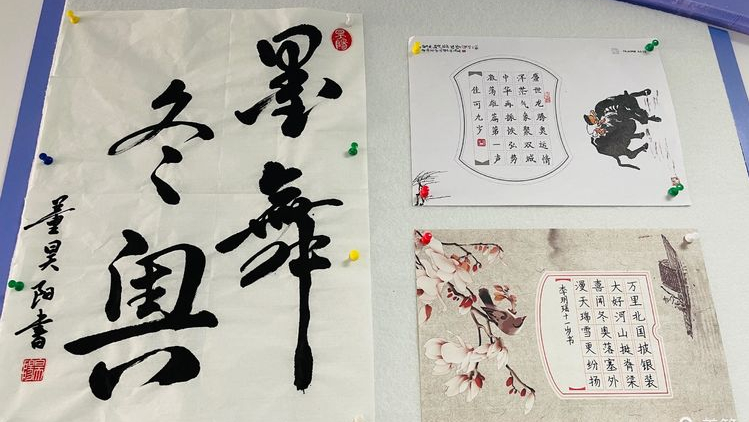 墨舞
冬奥
董昊阳书
盛世龙腾奥运情
气象聚双城
中华再振恢弘势
激荡雄篇第一声
九岁
万里北国披银装
大好河山挺脊梁
喜闻冬奥落塞外
漫天瑞雪更纷扬
李玥瑶十一岁书